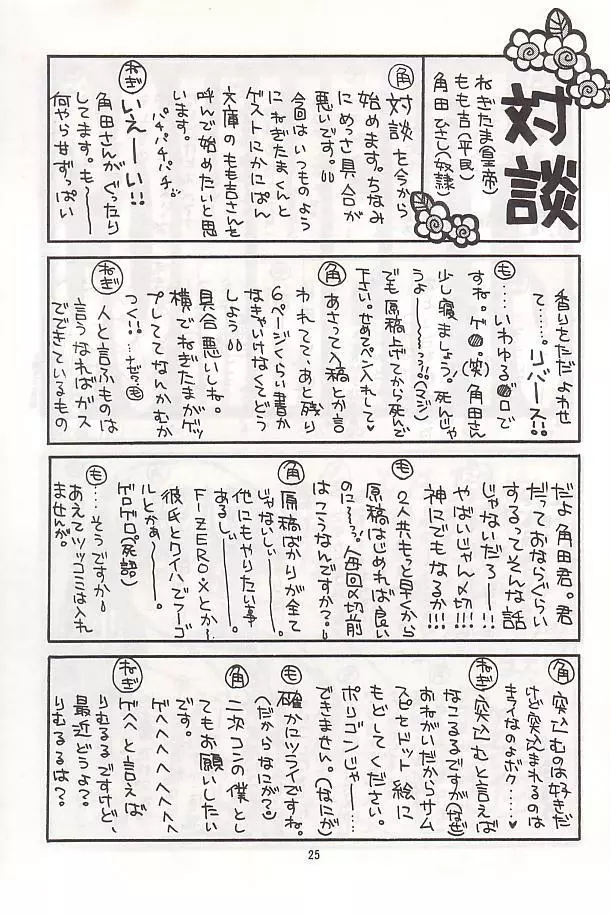 対談
ねぎたま(皇帝)
もも吉(平民)
角田ひさし(奴隷)
角 対談を今から
始めます。ちなみ
にめっさ具合が
悪いです。
今回はいつものよう
にねぎたまくんと
ゲストにかにぱん
文庫のもも吉さんを
呼んで始めたいと思
います。
パチパチパチ。
ねぎ いえーい!!
角田さんがぐったり
してます。も〜
何やらせずっぱい
香りをただよわせ
て……。リバース!!
も ……いわゆる●ロで
すね。ゲ●。(笑)角田さん
少し寝ましょう!死んじゃ
うよ———っっ!(マジ)
でも原稿上げてから死んで
下さい。せめてペン入れして♥
角 あさって入稿とか言
われてて、あと残り
6ページくらい書か
なきゃいけなくてどう
しよう
具合悪いしね。
横でねぎたまがゲッ
プしててなんかむか
つく!!…なぜっも
ねぎ 人と言ふものは
言うなればガス
でできているもの
だよ角田君。君
だっておならぐらい
するってそんな話
じゃないだろ——!!
やばいじゃん〆切!!
神にでもなるか!!!
も 2人共もっと早くから
原稿はじめれば良い
のに〜っっ!毎回〆切前
はこうなんですか?
角 原稿ばかりが全て
じゃないしぃ———。
他にもやりたい事
あるしぃ———。
F-ZERO·Xとか〜
彼氏とワイハでフーゴ
ルとかぁ〜———。
ゲロゲロ(死語)
も ……そうですか
あえてツッコミは入れ
ませんが。
角 突込むのは好きだ
けど突込まれるのは
キライなのよボク……♥
ねぎ 突込むと言えば
なこるるですが(なぜ)
おねがいだからサム
スピをドット絵に
もどしてください。
ポリゴンじゃ———
できません。(なにが)
も 確かにツライですね。
(だからなにが?)
角 二次コンの僕とし
てもお願いしたい
です。
ゲへへへへへへへ
ねぎ ゲへへと言えば
りむるるですけど、
最近どうよ?
りむるるは?
25